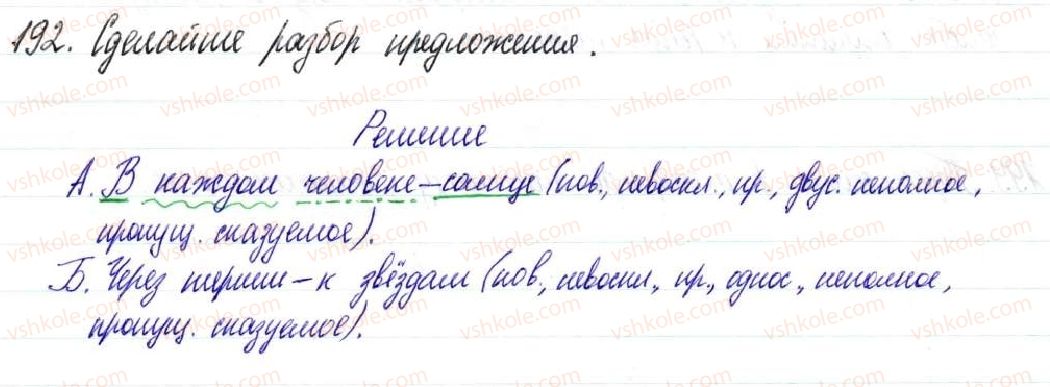 192. Сделайте разбор предложения.
Решение
А. В каждом человеке – солнце (пов., невоскл., пр., двус. неполное,
пропущ. сказуемое).
Б. Через тернии – к звёздам (пов., невоскл., пр., однос., неполное,
пропущ. сказуемое).